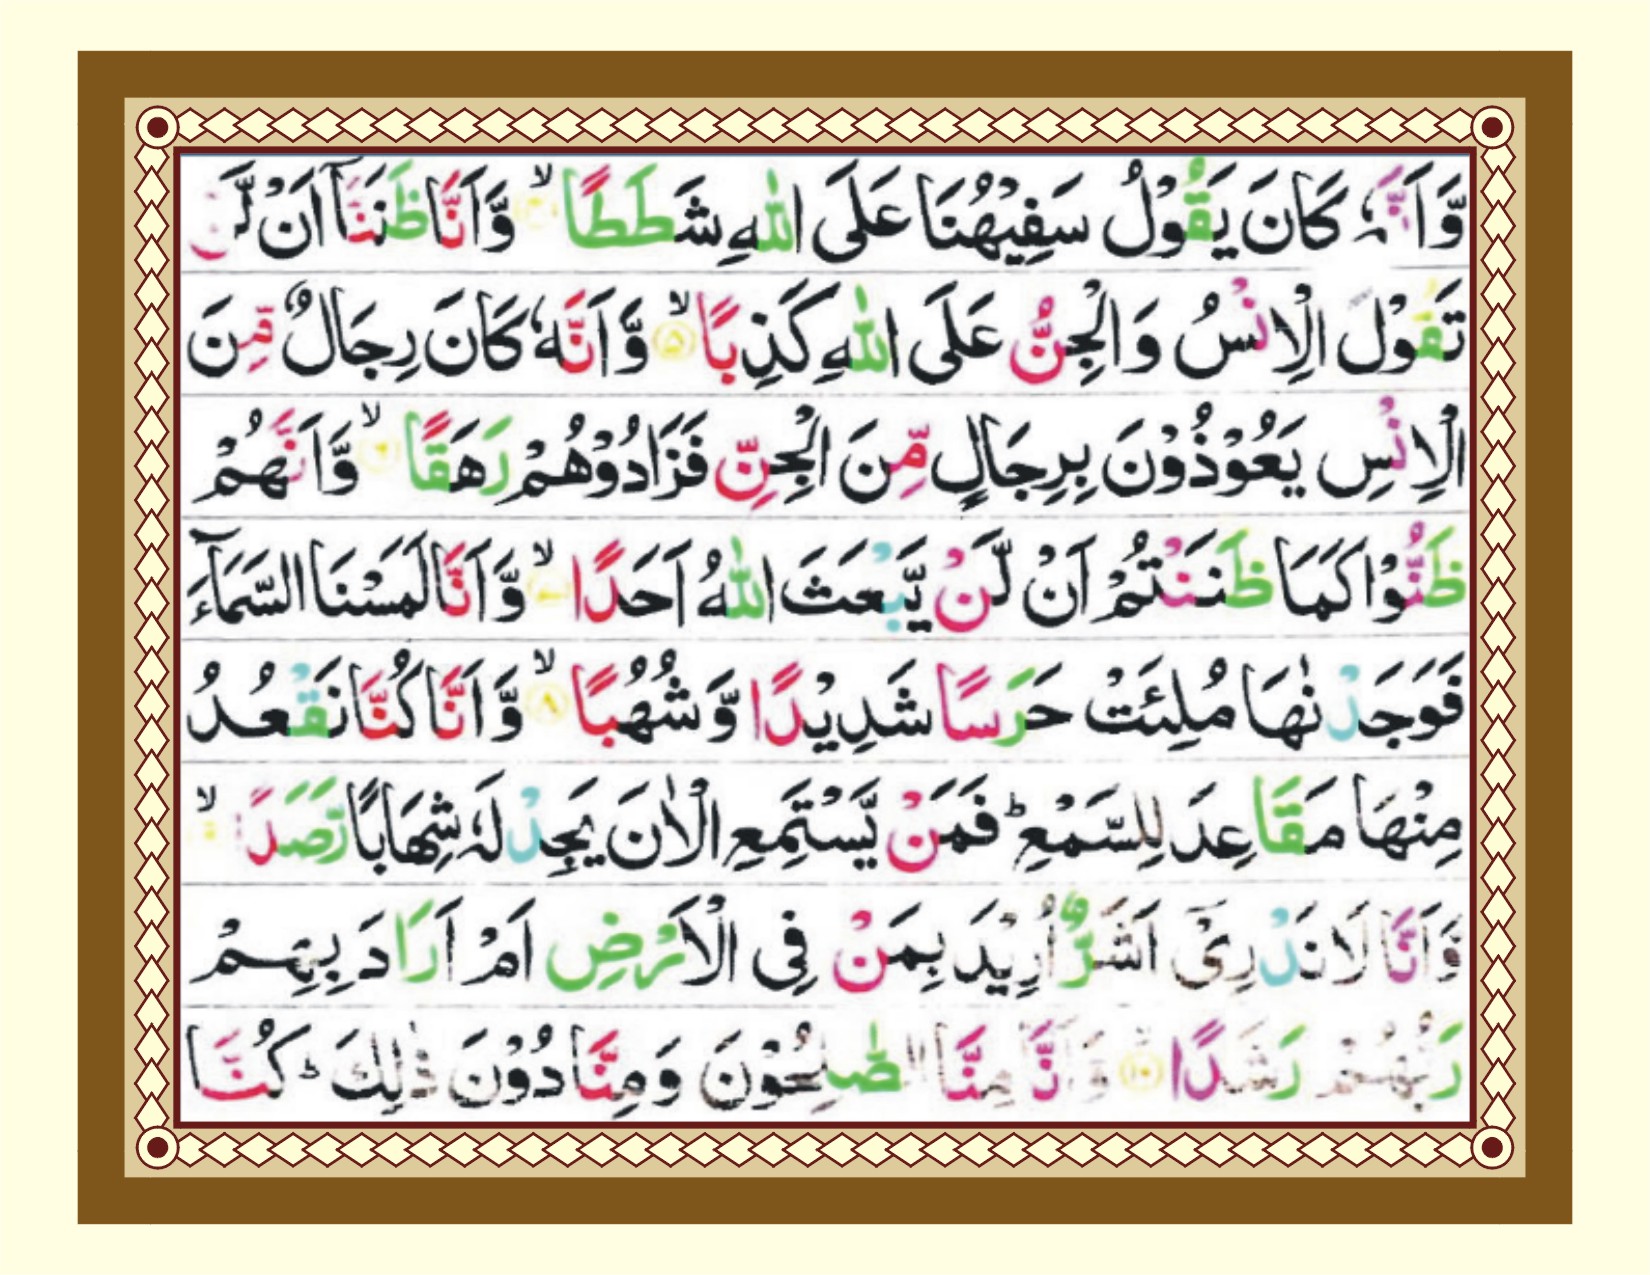 وَّاَنَّهٗ كَانَ يَقُوْلُ سَفِيْهُنَا عَلَى اللّٰهِ شَطَطًا ۙ﴿۴﴾ وَّاَنَّا ظَنَنَّاۤ اَنْ لَّنْ
تَقُوْلَ الْاِنْسُ وَالْجِنُّ عَلَى اللّٰهِ كَذِبًا ۙ﴿۵﴾ وَّاَنَّهٗ كَانَ رِجَالٌ مِّنَ
الْاِنْسِ يَعُوْذُوْنَ بِرِجَالٍ مِّنَ الْجِنِّ فَزَادُوْهُمْ رَهَقًا ۙ﴿۶﴾ وَّاَنَّهُمْ
ظَنُّوْا كَمَا ظَنَنْتُمْ اَنْ لَّنْ يَّبْعَثَ اللّٰهُ اَحَدًا ۙ﴿۷﴾ وَّاَنَّا لَمَسْنَا السَّمَآءَ
فَوَجَدْنٰهَا مُلِئَتْ حَرَسًا شَدِيْدًا وَّشُهُبًا ۙ﴿۸﴾ وَّاَنَّا كُنَّا نَقْعُدُ
مِنْهَا مَقَاعِدَ لِلسَّمْعِ ؕ فَمَنْ يَّسْتَمِعِ الْاٰنَ يَجِدْ لَهٗ شِهَابًا رَّصَدًا ۙ﴿۹﴾
وَّاَنَّا لَا نَدْرِىْۤ اَشَرٌّ اُرِيْدَ بِمَنْ فِى الْاَرْضِ اَمْ اَرَادَ بِهِمْ
رَبُّهُمْ رَشَدًا ۙ﴿۱۰﴾ وَّاَنَّا مِنَّا الصّٰلِحُوْنَ وَمِنَّا دُوْنَ ذٰلِكَ ؕ كُنَّا